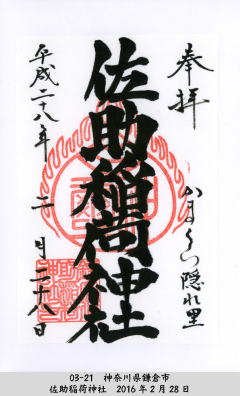 奉拝
かまくら隠れ里
佐助稲荷神社
平成二十八年二月二十八日
03-21 神奈川県鎌倉市
佐助稲荷神社 2016年2月28日